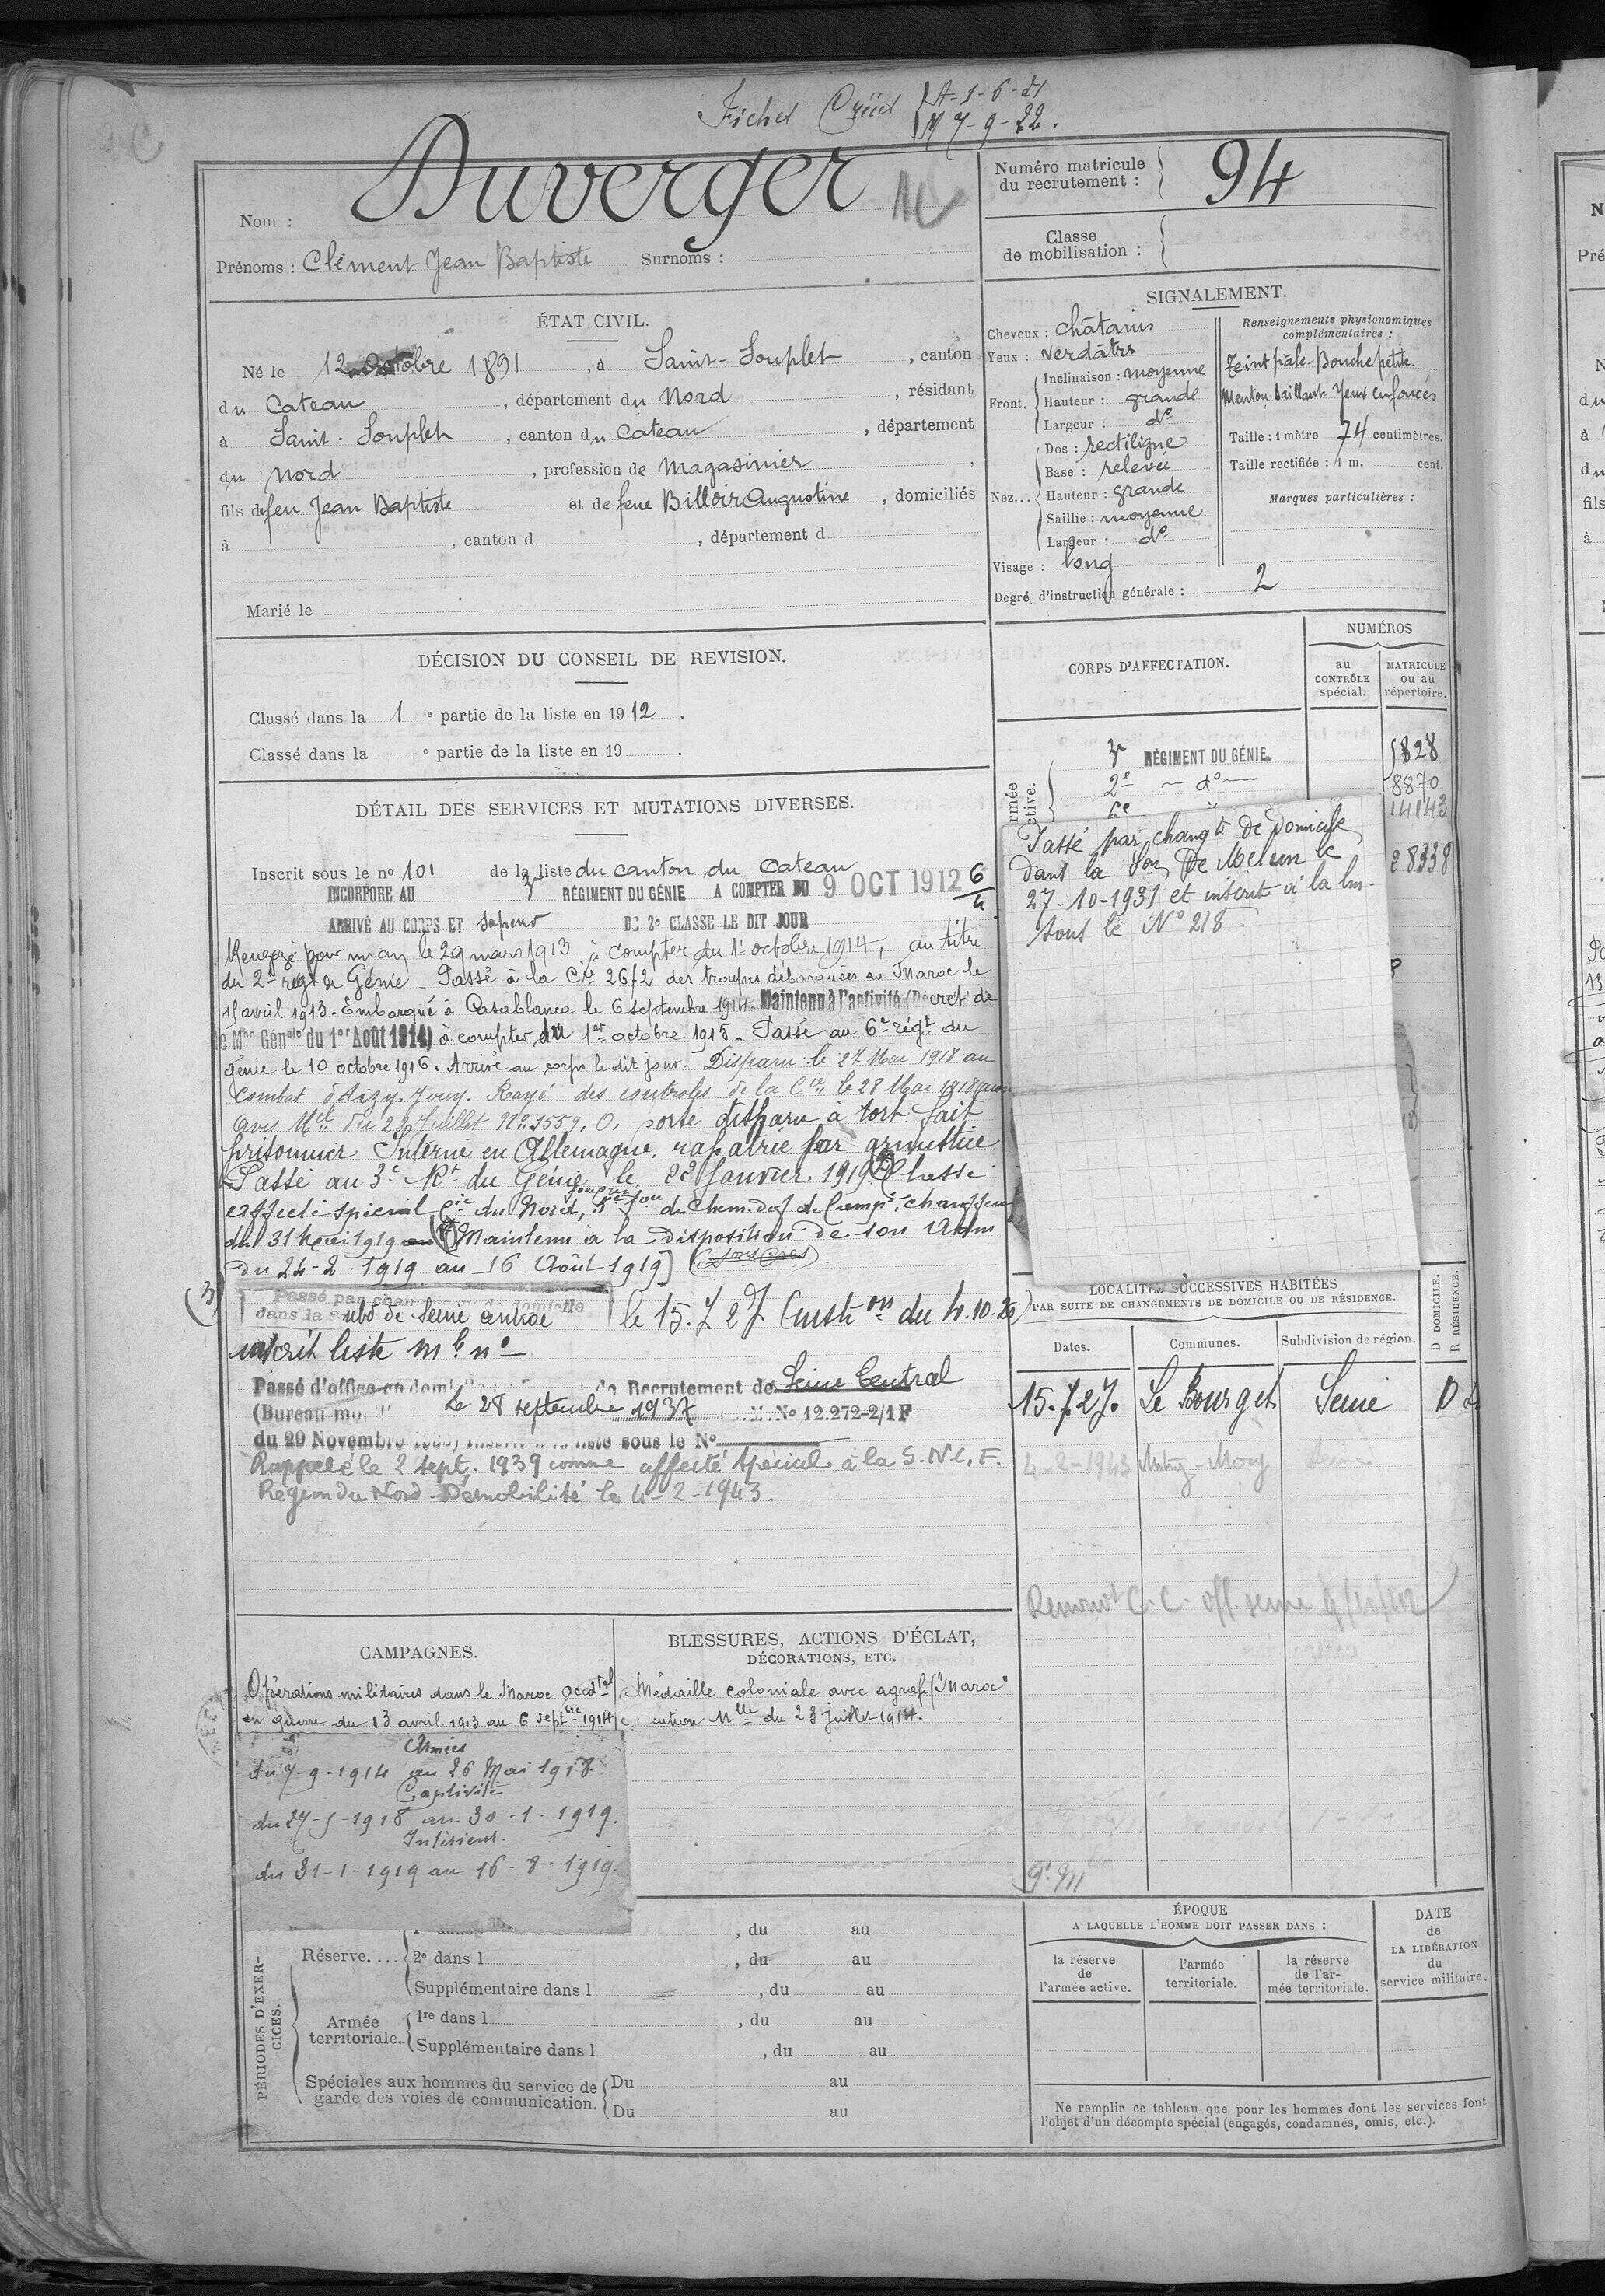 Fiches Créées A-1-6-21
M 7-9-22.
Nom : Duverger
Prénoms : Clément Jean Baptiste Surnoms :
Numéro matricule
du recrutement : 94
Classe
de mobilisation :
ÉTAT CIVIL.
Né le 12 octobre 1891, à Saint-Souplet, canton
du Cateau, département du Nord, résidant
à Saint-Souplet, canton du Cateau, département
du Nord, profession de Magasinier,
fils de feu Jean Baptiste et de feue Billoir Augustine, domiciliés
à , canton d , département d
Marié le
SIGNALEMENT.
Cheveux : châtains
Yeux : verdâtres
Front. Inclinaison : moyenne
Hauteur : grande
Largeur : d°
Nez... Dos : rectiligne
Base : relevée
Hauteur : grande
Saillie : moyenne
Largeur : d°
Visage : long
Degré d'instruction générale : 2
Renseignements physionomiques
complémentaires :
Teint pâle - Bouche petite.
Menton saillant - Yeux enfoncés
Taille : 1 mètre 74 centimètres.
Taille rectifiée : 1 m. cent.
Marques particulières :
DÉCISION DU CONSEIL DE REVISION.
Classé dans la 1 e partie de la liste en 1912.
Classé dans la e partie de la liste en 19 .
CORPS D'AFFECTATION.
NUMÉROS
au
CONTRÔLE
spécial.
MATRICULE
ou au
répertoire.
3e RÉGIMENT DU GÉNIE. 5828
2e — d° — 8870
6e " 14143
28338
Passé par changt de Domicile
dans la Son De Melun le
27-10-1931 et inscrit à la lm.
sous le N° 218.
DÉTAIL DES SERVICES ET MUTATIONS DIVERSES.
Inscrit sous le n° 101 de la liste du canton du Cateau
INCORPORÉ AU 3e RÉGIMENT DU GÉNIE A COMPTER DU 9 OCT 1912 6/4
ARRIVÉ AU CORPS ET sapeur DE 2e CLASSE LE DIT JOUR
Rengagé pour un an le 29 mars 1913 à compter du 1er octobre 1914, au titre
du 2e régt de Génie - Passé à la Cie 26/2 des troupes débarquées au Maroc le
15 avril 1913. Embarqué à Casablanca le 6 septembre 1914. Maintenu à l'activité (Décret de
le Mon Génle du 1er Août 1914) à compter du 1er octobre 1915. Passé au 6e régt du
Génie le 10 octobre 1916. Arrivé au corps le dit jour. Disparu le 27 Mai 1918 au
Combat d'Aizy-Jouy. Rayé des contrôles de la Cie le 28 Mai 1918
Avis Mel du 29 Juillet N° 1559. O. porté disparu à tort fait
prisonnier Interné en Allemagne. rapatrié par armistice
Passé au 3e Rt du Génie le 22 Janvier 1919. Classé
affecté spécial Cie du Nord, 5e Son de Chem. de f. de Campe, chauffeur
du 31 Mai 1919 Maintenu à la disposition de son Adm
du 24-2-1919 au 16 Août 1919]
(3) Passé par changement de domicile
dans la subd de Seine centrale le 15.7.27 (instron du 4.10.26)
inscrit liste mle n°
Passé d'office en domicile Recrutement de Seine Central
(Bureau Le 28 septembre 1937 N° 12.272-2/1F
du 29 Novembre sous le N°
Rappelé le 2 sept. 1939 comme affecté spécial à la S.N.C.F.
Région du Nord - Démobilisé le 4-2-1943.
LOCALITÉS SUCCESSIVES HABITÉES
PAR SUITE DE CHANGEMENTS DE DOMICILE OU DE RÉSIDENCE.
Dates. Communes. Subdivision de région. D DOMICILE. R RÉSIDENCE.
15.7.27. Le Bourget Seine D
4-2-1943 Mitry-Mory Seine
CAMPAGNES.
Opérations militaires dans le Maroc Occdtal
en guerre du 13 avril 1913 au 6 septbre 1914
Armées
du 7-9-1914 au 26 Mai 1918
Captivité
du 27-5-1918 au 30-1-1919.
Intérieur.
du 31-1-1919 au 16-8-1919.
BLESSURES, ACTIONS D'ÉCLAT,
DÉCORATIONS, ETC.
Médaille coloniale avec agrafe "Maroc"
Mlle du 28 juillet 1914.
PÉRIODES D'EXERCICES.
Réserve.... , du au
2e dans l , du au
Supplémentaire dans l , du au
Armée
territoriale.. 1re dans l , du au
Supplémentaire dans l , du au
Spéciales aux hommes du service de
garde des voies de communication. Du au
Du au
ÉPOQUE
A LAQUELLE L'HOMME DOIT PASSER DANS :
la réserve
de
l'armée active.
l'armée
territoriale.
la réserve
de l'ar-
mée territoriale.
DATE
de
LA LIBÉRATION
du
service militaire.
Ne remplir ce tableau que pour les hommes dont les services font
l'objet d'un décompte spécial (engagés, condamnés, omis, etc.).